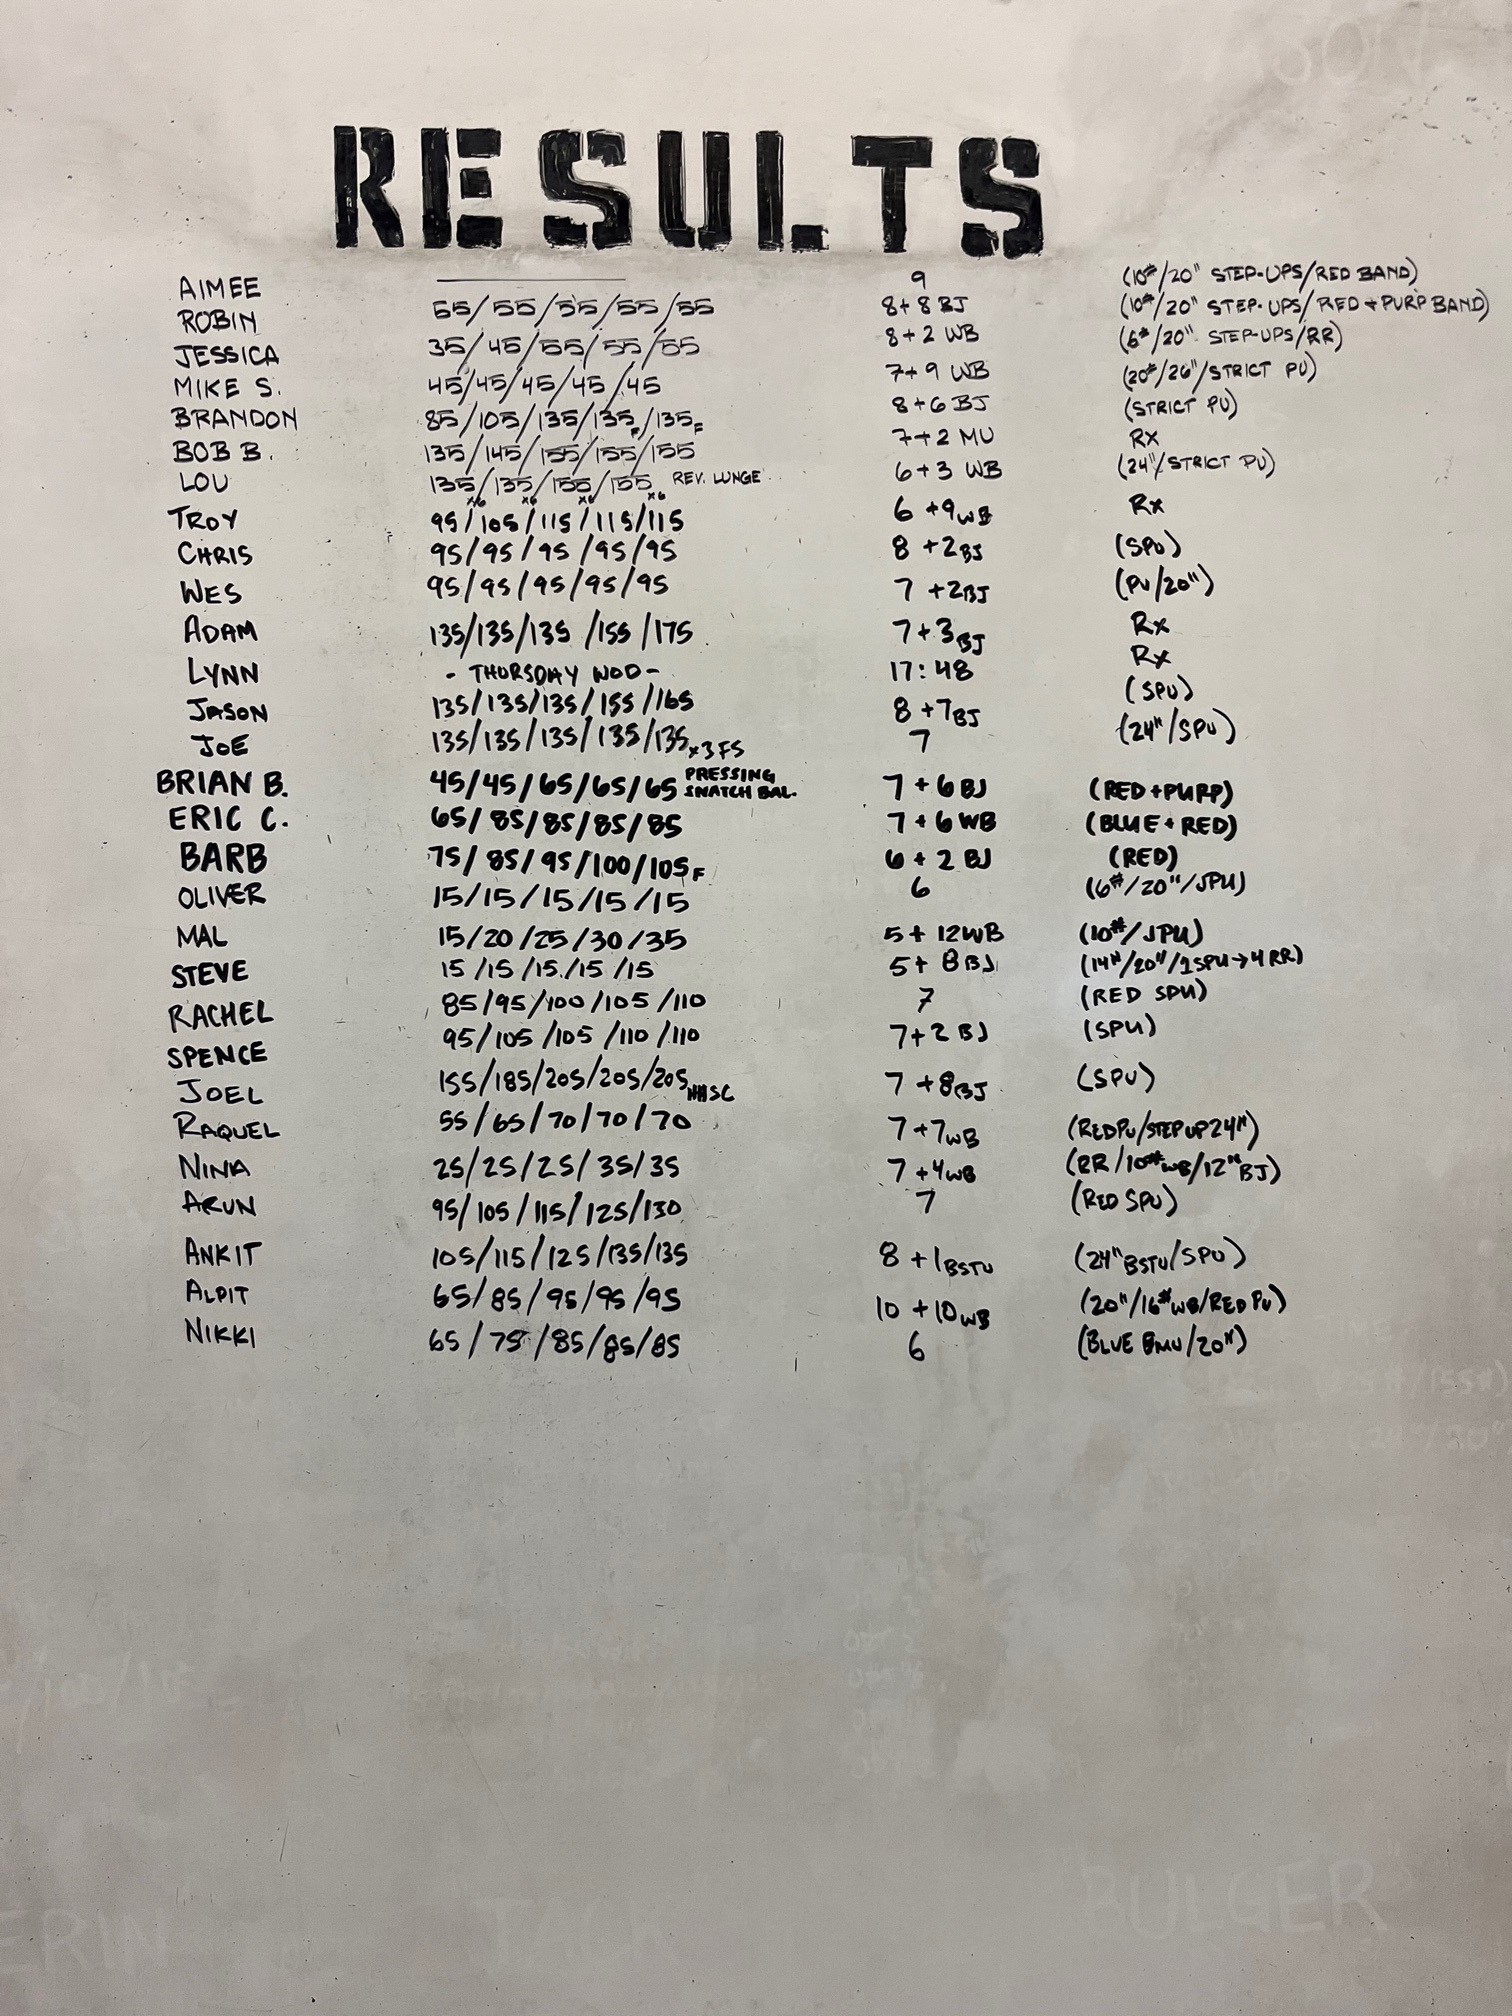 RESULTS
AIMEE 9 (10#/20" STEP-UPS/RED BAND)
ROBIN 55/55/55/55/55 8+8 BJ (10#/20" STEP-UPS/RED+PURP BAND)
JESSICA 35/45/55/55/55 8+2 WB (6#/20" STEP-UPS/RR)
MIKE S. 45/45/45/45/45 7+9 WB (20#/26"/STRICT PU)
BRANDON 85/105/135/135F/135F 8+6 BJ (STRICT PU)
BOB B. 135/145/155/155/155 7+2 MU Rx
LOU 135x6/135x6/155x6/155x6 REV. LUNGE 6+3 WB (24"/STRICT PU)
TROY 95/105/115/115/115 6+9WB Rx
CHRIS 95/95/95/95/95 8+2BJ (SPU)
WES 95/95/95/95/95 7+2BJ (PU/20")
ADAM 135/135/135/155/175 7+3BJ Rx
LYNN - THURSDAY WOD - 17:48 Rx
JASON 135/135/135/155/165 8+7BJ (SPU)
JOE 135/135/135/135/135x3FS 7 (24"/SPU)
BRIAN B. 45/45/65/65/65 PRESSING SNATCH BAL. 7+6 BJ (RED+PURP)
ERIC C. 65/85/85/85/85 7+6 WB (BLUE+RED)
BARB 75/85/95/100/105F 6+2 BJ (RED)
OLIVER 15/15/15/15/15 6 (6#/20"/JPU)
MAL 15/20/25/30/35 5+12WB (10#/JPU)
STEVE 15/15/15/15/15 5+8BJ (14#/20"/1SPU→4RR)
RACHEL 85/95/100/105/110 7 (RED SPU)
SPENCE 95/105/105/110/110 7+2 BJ (SPU)
JOEL 155/185/205/205/205HHSC 7+8BJ (SPU)
RAQUEL 55/65/70/70/70 7+7WB (REDPU/STEP UP 24")
NINA 25/25/25/35/35 7+4WB (RR/10#WB/12"BJ)
ARUN 95/105/115/125/130 7 (RED SPU)
ANKIT 105/115/125/135/135 8+1BSTU (24"BSTU/SPU)
ALPIT 65/85/95/95/95 10+10WB (20"/16#WB/RED PU)
NIKKI 65/75/85/85/85 6 (BLUE BMU/20")
ERIN JACK BULGER